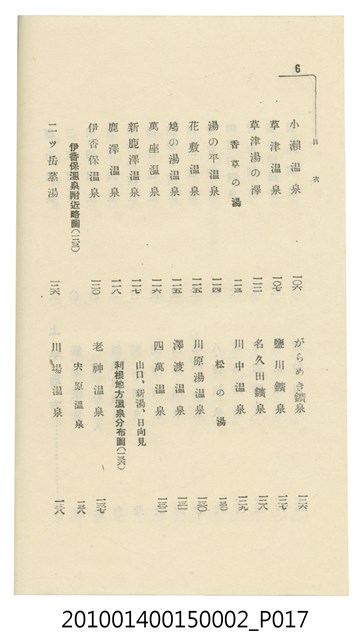 6
目次
小瀬温泉 一〇六
草津温泉 一〇七
草津湯の澤
香草の湯
湯の平温泉 一一四
花敷温泉 一一五
鳩の湯温泉 一一五
萬座温泉 一一六
新鹿澤温泉 一一七
鹿澤温泉 一一八
伊香保温泉 一二〇
伊香保温泉附近略圖
二ッ岳蒸湯 一二六
がらめき鑛泉 一二六
鹽川鑛泉 一二七
名久田鑛泉 一二八
川中温泉 一二九
松の湯 一三〇
川原湯温泉 一三〇
澤渡温泉 一三一
四萬温泉
山口、新湯、日向見
利根地方温泉分布圖(一三六)
老神温泉 一三七
川場温泉 一三八
201001400150002_P017